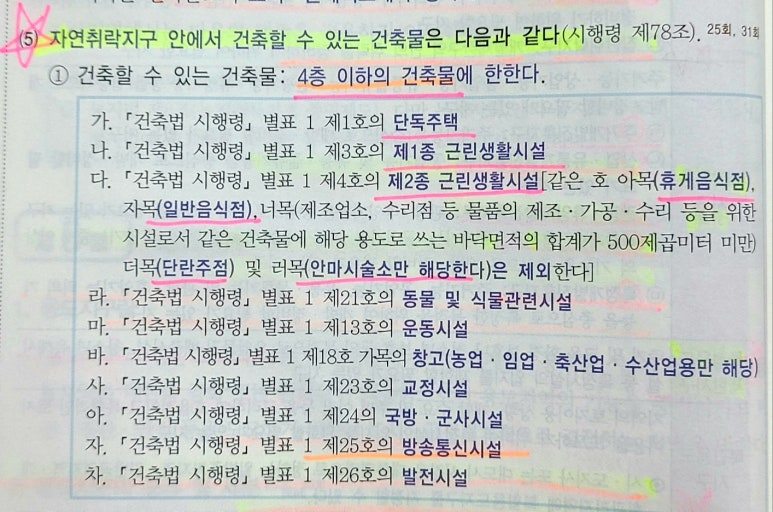 (5) 자연취락지구 안에서 건축할 수 있는 건축물은 다음과 같다(시행령 제78조). 25회, 31회
① 건축할 수 있는 건축물: 4층 이하의 건축물에 한한다.
가. 「건축법 시행령」 별표 1 제1호의 단독주택
나. 「건축법 시행령」 별표 1 제3호의 제1종 근린생활시설
다. 「건축법 시행령」 별표 1 제4호의 제2종 근린생활시설[같은 호 아목(휴게음식점),
자목(일반음식점),너목(제조업소, 수리점 등 물품의 제조·가공·수리 등을 위한
시설로서 같은 건축물에 해당 용도로 쓰는 바닥면적의 합계가 500제곱미터 미만)
더목(단란주점) 및 러목(안마시술소만 해당한다)은 제외한다]
라. 「건축법 시행령」 별표 1 제21호의 동물 및 식물관련시설
마. 「건축법 시행령」 별표 1 제13호의 운동시설
바. 「건축법 시행령」 별표 1 제18호 가목의 창고(농업·임업·축산업·수산업용만 해당)
사. 「건축법 시행령」 별표 1 제23호의 교정시설
아. 「건축법 시행령」 별표 1 제24의 국방·군사시설
자. 「건축법 시행령」 별표 1 제25호의 방송통신시설
차. 「건축법 시행령」 별표 1 제26호의 발전시설